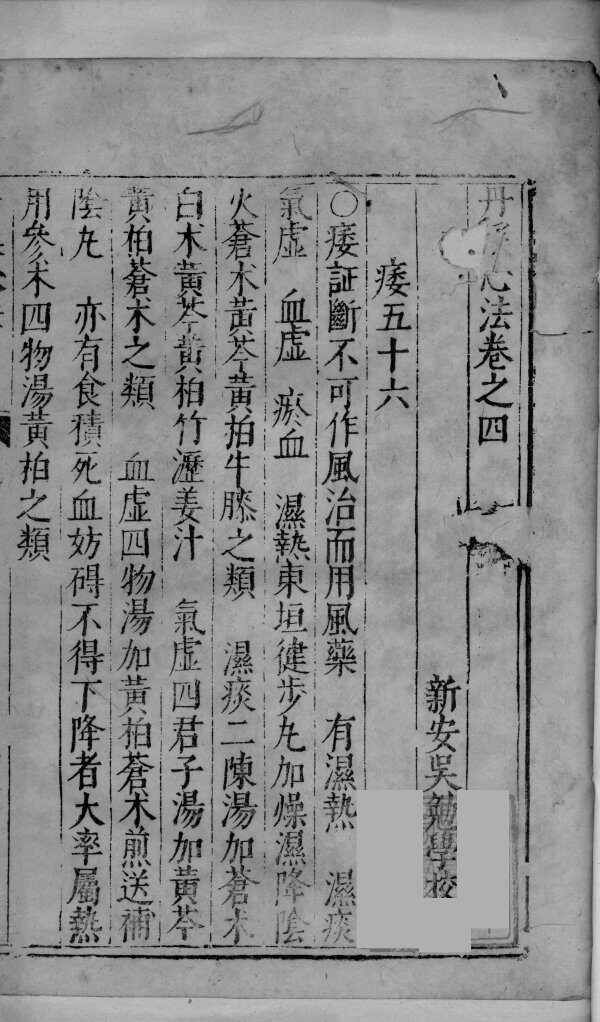 丹溪心法卷之四
新安吳勉學校
痿五十六
○痿証斷不可作風治而用風藥　有濕熱　濕痰
氣虛　血虛　瘀血　濕熱東垣徤步丸加燥濕降陰
火蒼朮黃芩黃柏牛膝之類　濕痰二陳湯加蒼朮
白朮黃芩黃柏竹瀝姜汁　氣虛四君子湯加黃芩
黃柏蒼朮之類　血虛四物湯加黃柏蒼朮煎送補
陰丸　亦有食積死血妨碍不得下降者大率屬熱
用參朮四物湯黃柏之類